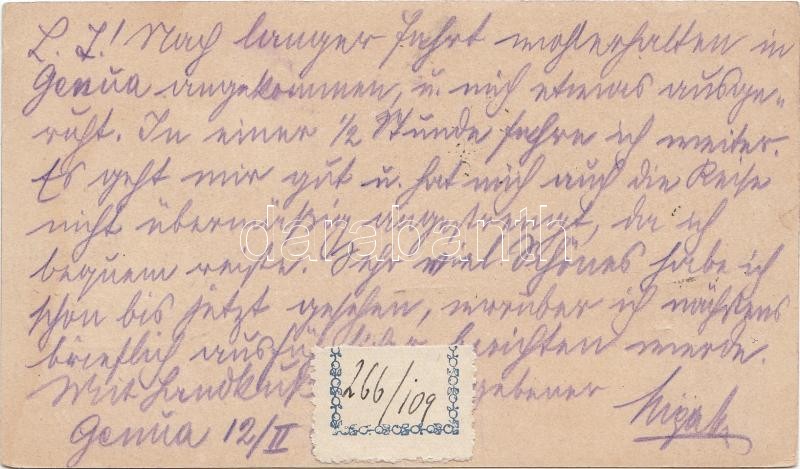 L. J.! Nach langer Fahrt wohlerhalten in
Genua angekommen, u. mich etwas ausge-
ruht. In einer 1/2 Stunde fahre ich weiter.
Es geht mir gut u. hat mich auch die Reise
nicht übermäßig angestrengt, da ich
darabanth
bequem reiste. Sehr viel Schönes habe ich
schon bis jetzt gesehen, worüber ich nächstens
brieflich ausführlicher berichten werde.
Mit Handkuß gebener
266/109
Genua 12/II